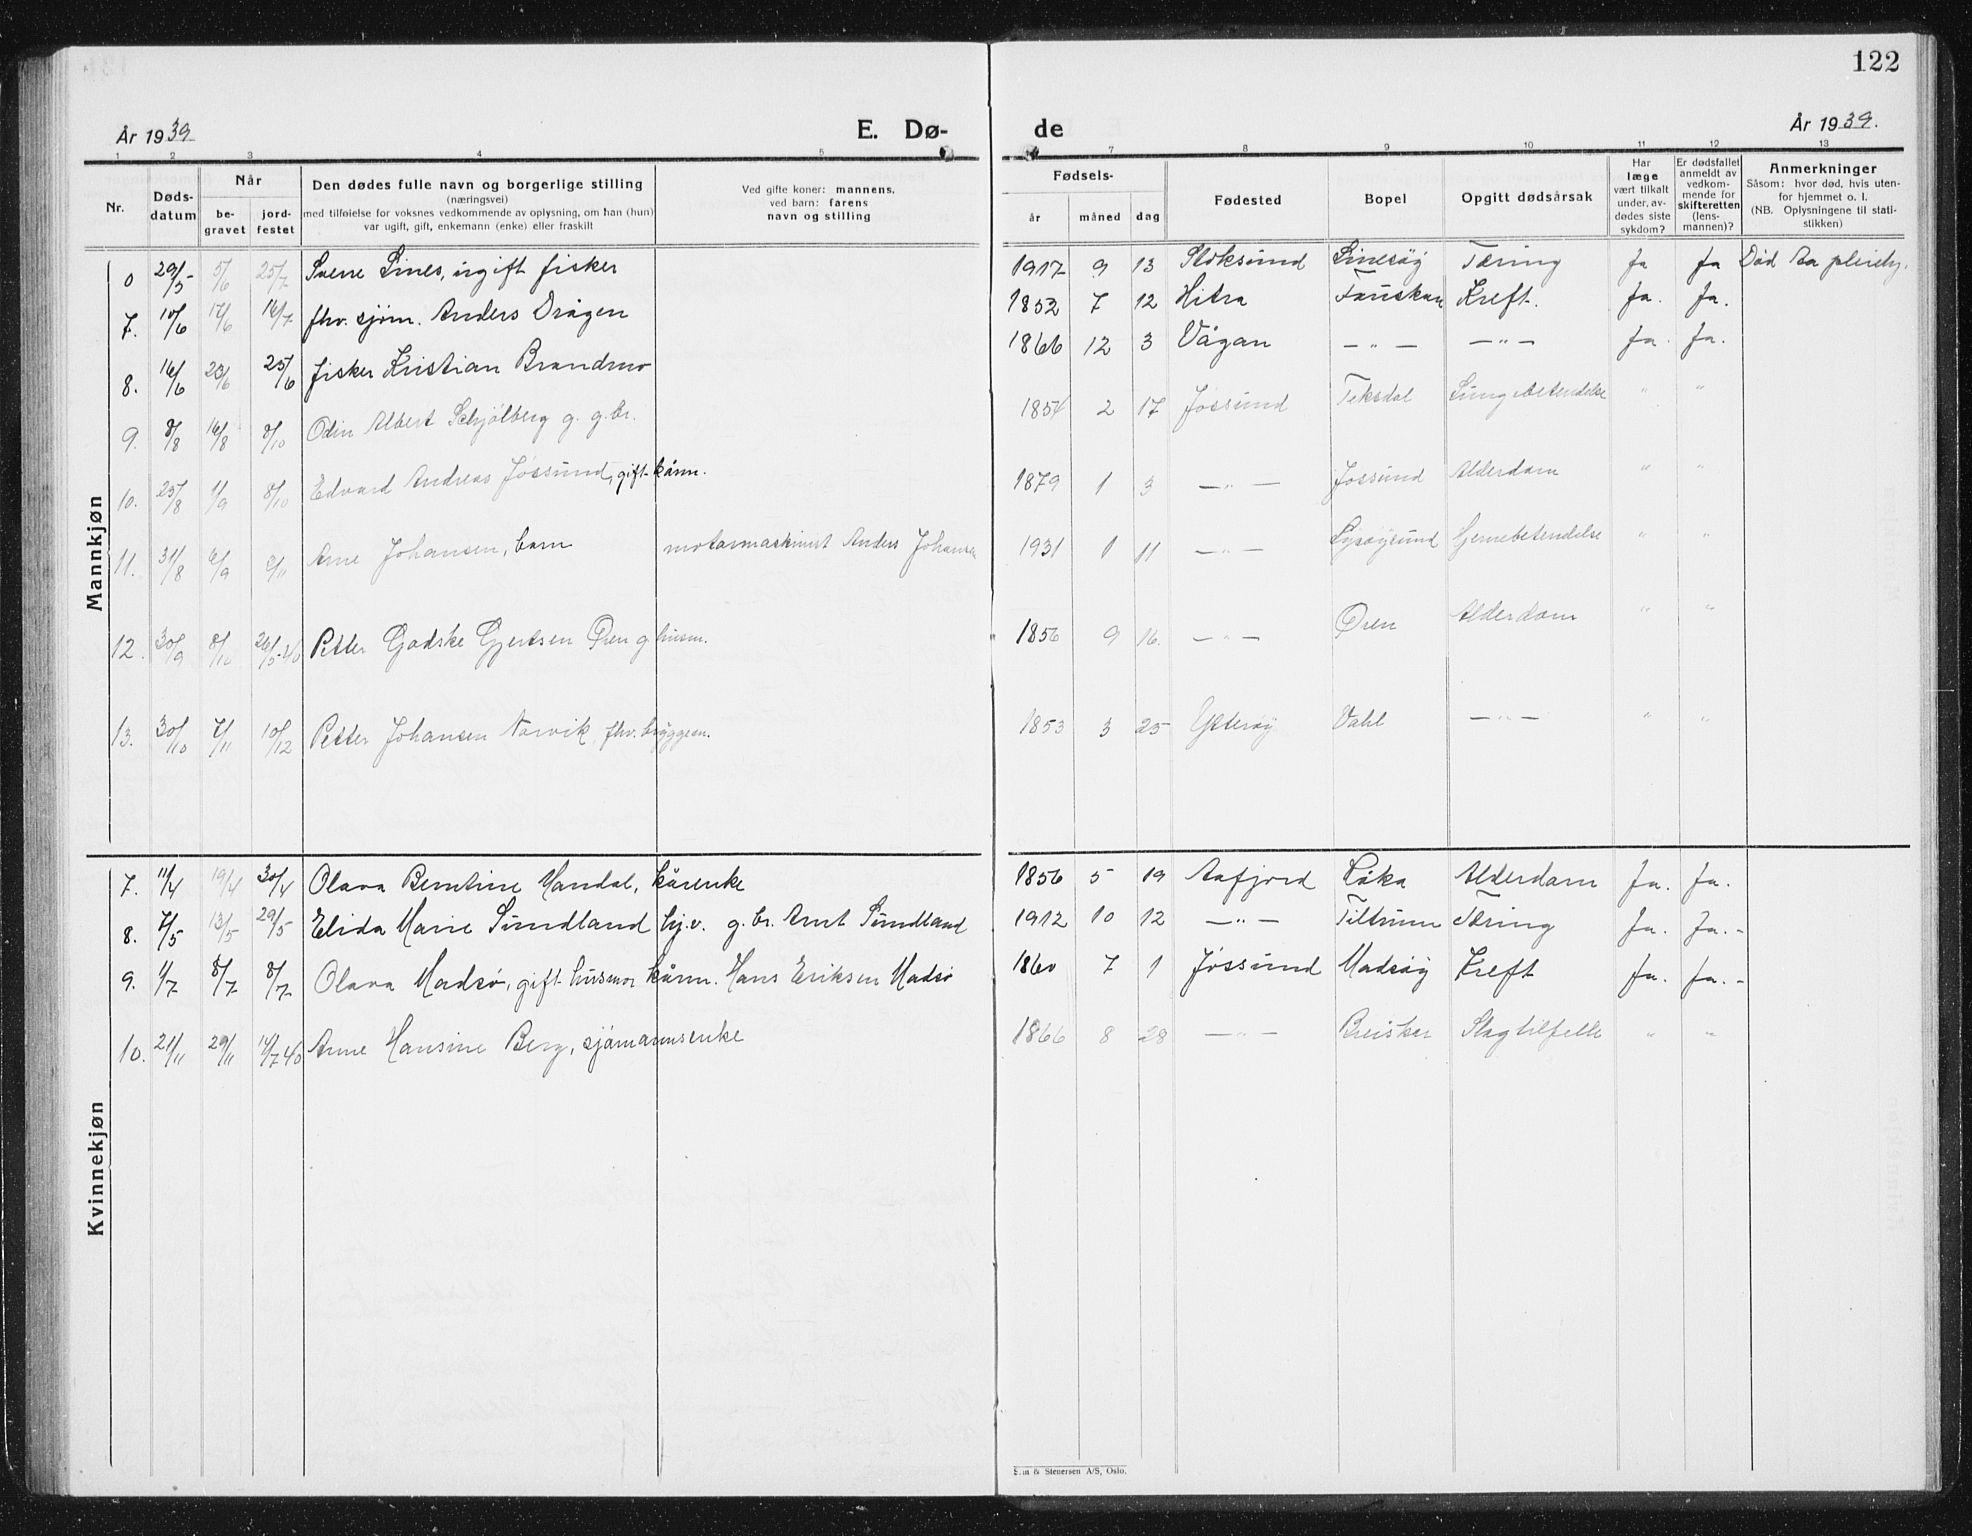 122
År 1939
E. Dø-
de
År 1939.
1 2 3 4 5
7 8 9 10 11 12 13
Nr.
Døds-
datum
Når
be-
gravet
jord-
festet
Den dødes fulle navn og borgerlige stilling
(næringsvei)
med tilføielse for voksnes vedkommende av oplysning, om han (hun)
var ugift, gift, enkemann (enke) eller fraskilt
Ved gifte koner: mannens,
ved barn: farens
navn og stilling
Fødsels-
år måned dag
Fødested
Bopel
Opgitt dødsårsak
Har
læge
vært tilkalt
under, av-
dødes siste
sykdom?
Er dødsfallet
anmeldt av
vedkom-
mende for
skifteretten
(lens-
mannen)?
Anmerkninger
Såsom: hvor død, hvis uten-
for hjemmet o. l.
(NB. Oplysningene til stati-
stikken)
Mannkjøn
0 29/5 5/6 25/7 Sverre Lines, ugift fisker 1917 9 13 Stoksund Linesøy Tæring Ja Ja Død Aa pleiehj.
7. 10/6 17/6 16/7 fhv. sjøm. Anders Drågen 1852 7 12 Hitra Kreft. Ja. Ja.
8. 16/6 23/6 25/6 fisker Kristian Brandmo 1866 12 3 Vågan — " — — " — Ja. Ja.
9. 8/8 16/8 8/10 Odin Albert Schjølberg g. g.br. 1854 2 17 Jøssund Teksdal Lungebetendelse " "
10. 25/8 1/9 8/10 Edvard Andreas Jøssund, gift kårm. 1879 1 3 — " — Jøssund Alderdom " "
11. 31/8 6/9 Arne Johansen, barn motormaskinist Anders Johansen 1931 1 11 — " — Lysøysund Hjernebetendelse " "
12. 30/9 8/10 26/5-40 Petter Godske Gjertsen Øren g husm. 1856 9 16. — " — Øren Alderdom " "
13. 30/10 7/11 10/12 Petter Johansen Narvik, fhv. byggem. 1853 3 25 Ytterøy Vahl — " — " "
Kvinnekjøn
7. 11/4 19/4 30/4 Olava Berntine Mandal, kårenke 1856 5 19 Aafjord Råka Alderdom Ja. Ja.
8. 7/5 13/5 29/5 Elida Marie Sundland hj.v. g. br. Arnt Sundland 1912 10 12 — " — Tiltrum Tæring Ja. Ja. -
9. 1/7 8/7 8/7 Olava Madsø, gift husmor kårm. Hans Eriksen Madsø 1860 7 1 Jøssund Madsøy Kreft Ja. Ja. -
10. 21/11 29/11 14/7 40 Anne Hansine Berg, sjømannsenke 1866 8 28 — " — Breisker Slagtilfelle " "
& Stenersen A/S, Oslo.